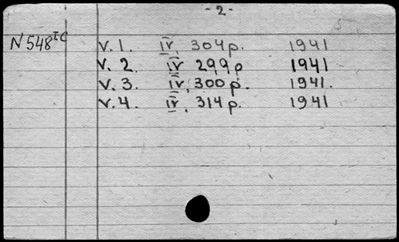 - 2 -
N 548 IC v. 1. IV, 304 p. 1941
v. 2 IV 299 p 1941
v. 3. IV, 300 p. 1941.
v. 4. IV, 314 p. 1941